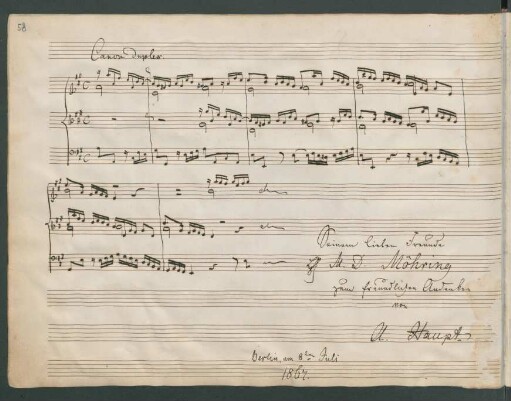 58
Canon duplex.
Seinem lieben Freunde
M. D. Möhring
zum freundlichen Andenken
von
A. Haupt.
Berlin, am 8ten Juli
1867.